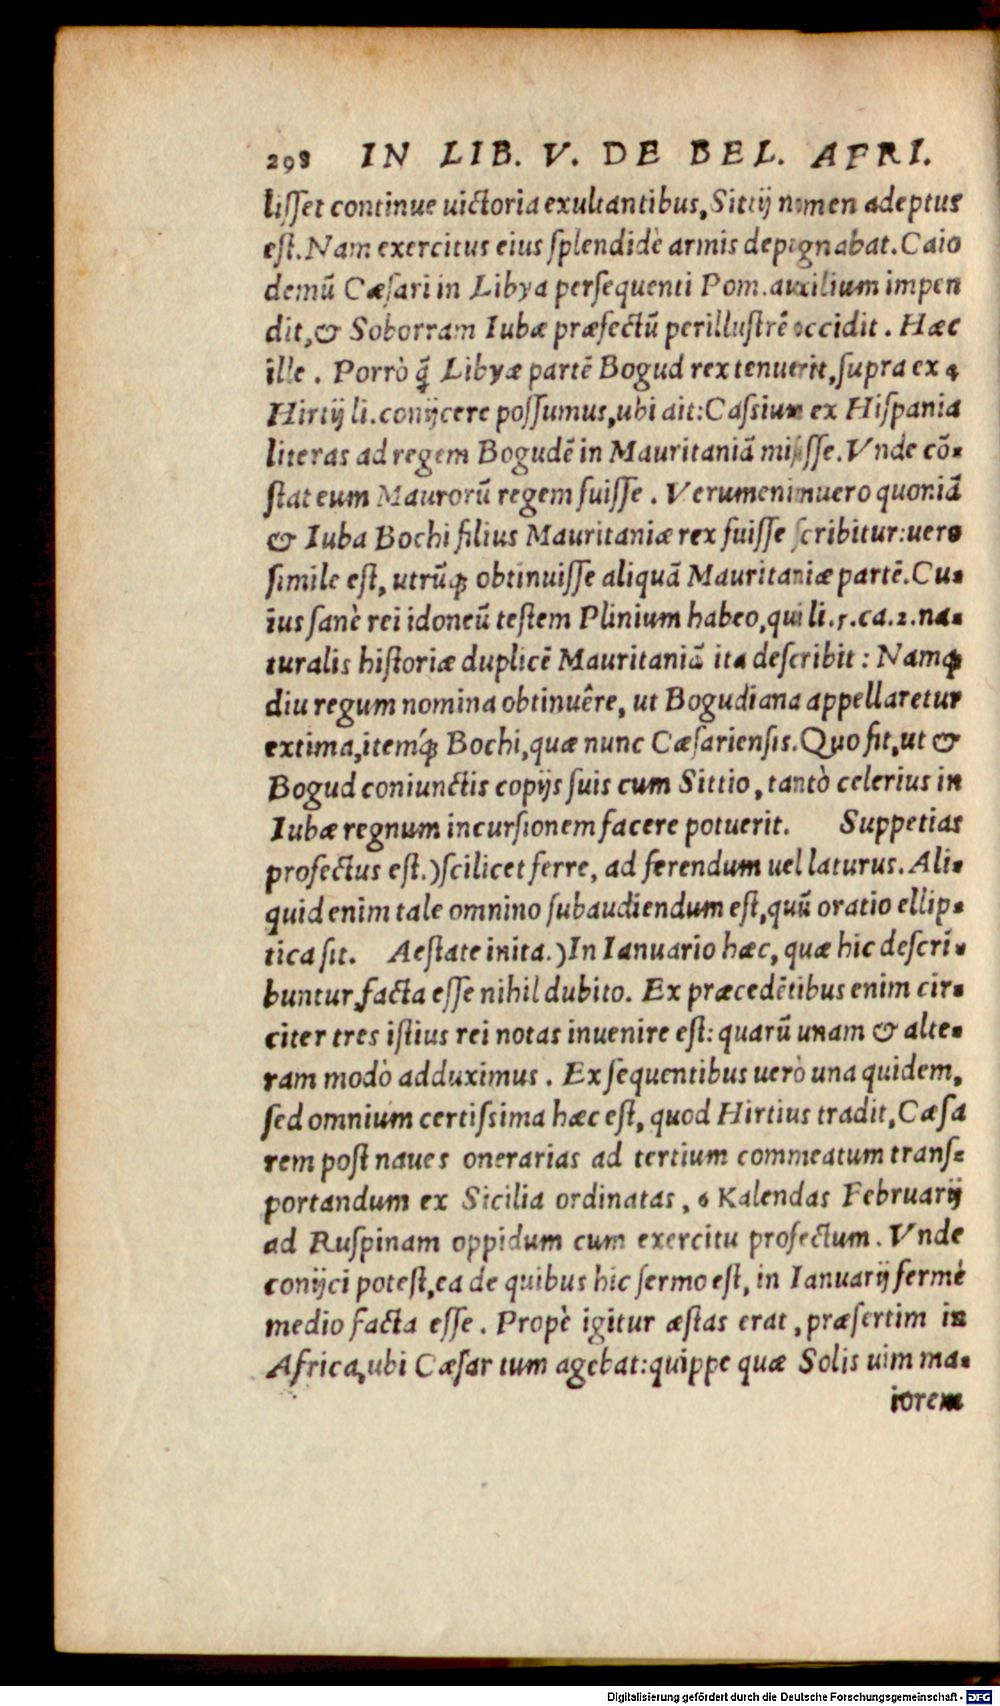 298 IN LIB. V. DE BEL. AFRI.
lisset continue uictoria exultantibus, Sittij nomen adeptus
est. Nam exercitus eius splendidè armis depugnabat. Caio
demũ Cæsari in Libya persequenti Pom. auxilium impen
dit, & Soborram Iubæ præfectũ perillustrẽ occidit. Hæc
ille. Porrò q̃ Libyæ partẽ Bogud rex tenuerit, supra ex 4
Hirtij li. conijcere possumus, ubi ait: Cassium ex Hispania
literas ad regem Bogudẽ in Mauritaniã misisse. Vnde cõ-
stat eum Maurorũ regem fuisse. Verumenimuero quoniã
& Iuba Bochi filius Mauritaniæ rex fuisse scribitur: uero
simile est, utrũq; obtinuisse aliquã Mauritaniæ partẽ. Cu-
ius sanè rei idoneũ testem Plinium habeo, qui li. 5. ca. 2. na-
turalis historiæ duplicẽ Mauritaniã ita describit: Namq;
diu regum nomina obtinuêre, ut Bogudiana appellaretur
extima, itemq́; Bochi, quæ nunc Cæsariensis. Quo fit, ut &
Bogud coniunctis copijs suis cum Sittio, tantò celerius in
Iubæ regnum incursionem facere potuerit. Suppetias
profectus est.) scilicet ferre, ad ferendum uel laturus. Ali-
quid enim tale omnino subaudiendum est, quũ oratio ellip-
tica sit. Aestate inita.) In Ianuario hæc, quæ hic descri-
buntur, facta esse nihil dubito. Ex præcedẽtibus enim cir-
citer tres istius rei notas inuenire est: quarũ unam & alte-
ram modò adduximus. Ex sequentibus uerò una quidem,
sed omnium certissima hæc est, quod Hirtius tradit, Cæsa
rem post naues onerarias ad tertium commeatum trans-
portandum ex Sicilia ordinatas, 6 Kalendas Februarij
ad Ruspinam oppidum cum exercitu profectum. Vnde
conijci potest, ea de quibus hic sermo est, in Ianuarij fermè
medio facta esse. Propè igitur æstas erat, præsertim in
Africa, ubi Cæsar tum agebat: quippe quæ Solis uim ma-
iorem
Digitalisierung gefördert durch die Deutsche Forschungsgemeinschaft - DFG